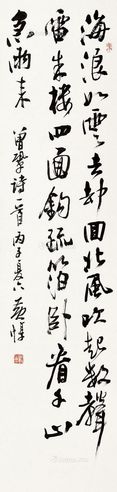 海浪如雲去却回北風吹起数聲
雷朱樓四面鈎疏箔卧看千山
急雨来
曾鞏詩一首丙子夏六